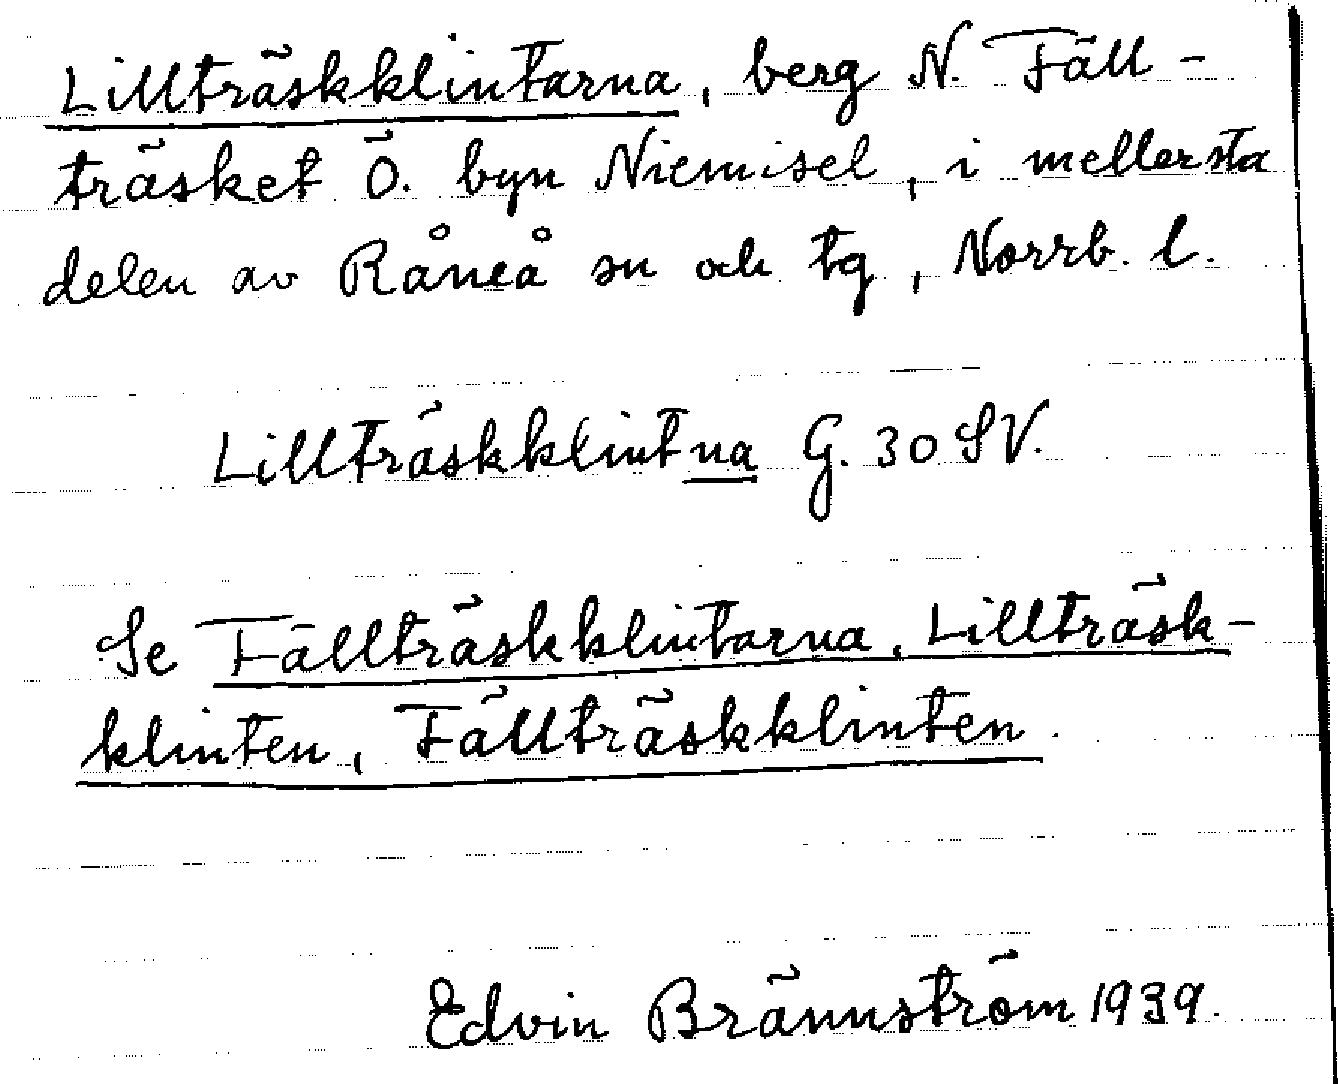 Lillträskklintarna, berg N. Fäll-
träsket Ö. byn Niemisel, i mellersta
delen av Råneå sn och tg, Norrb. l.
Lillträskklintna G. 30 SV.
Se Fällträskklintarna, Lillträsk-
klinten, Fällträskklinten.
Edvin Brännström 1939.